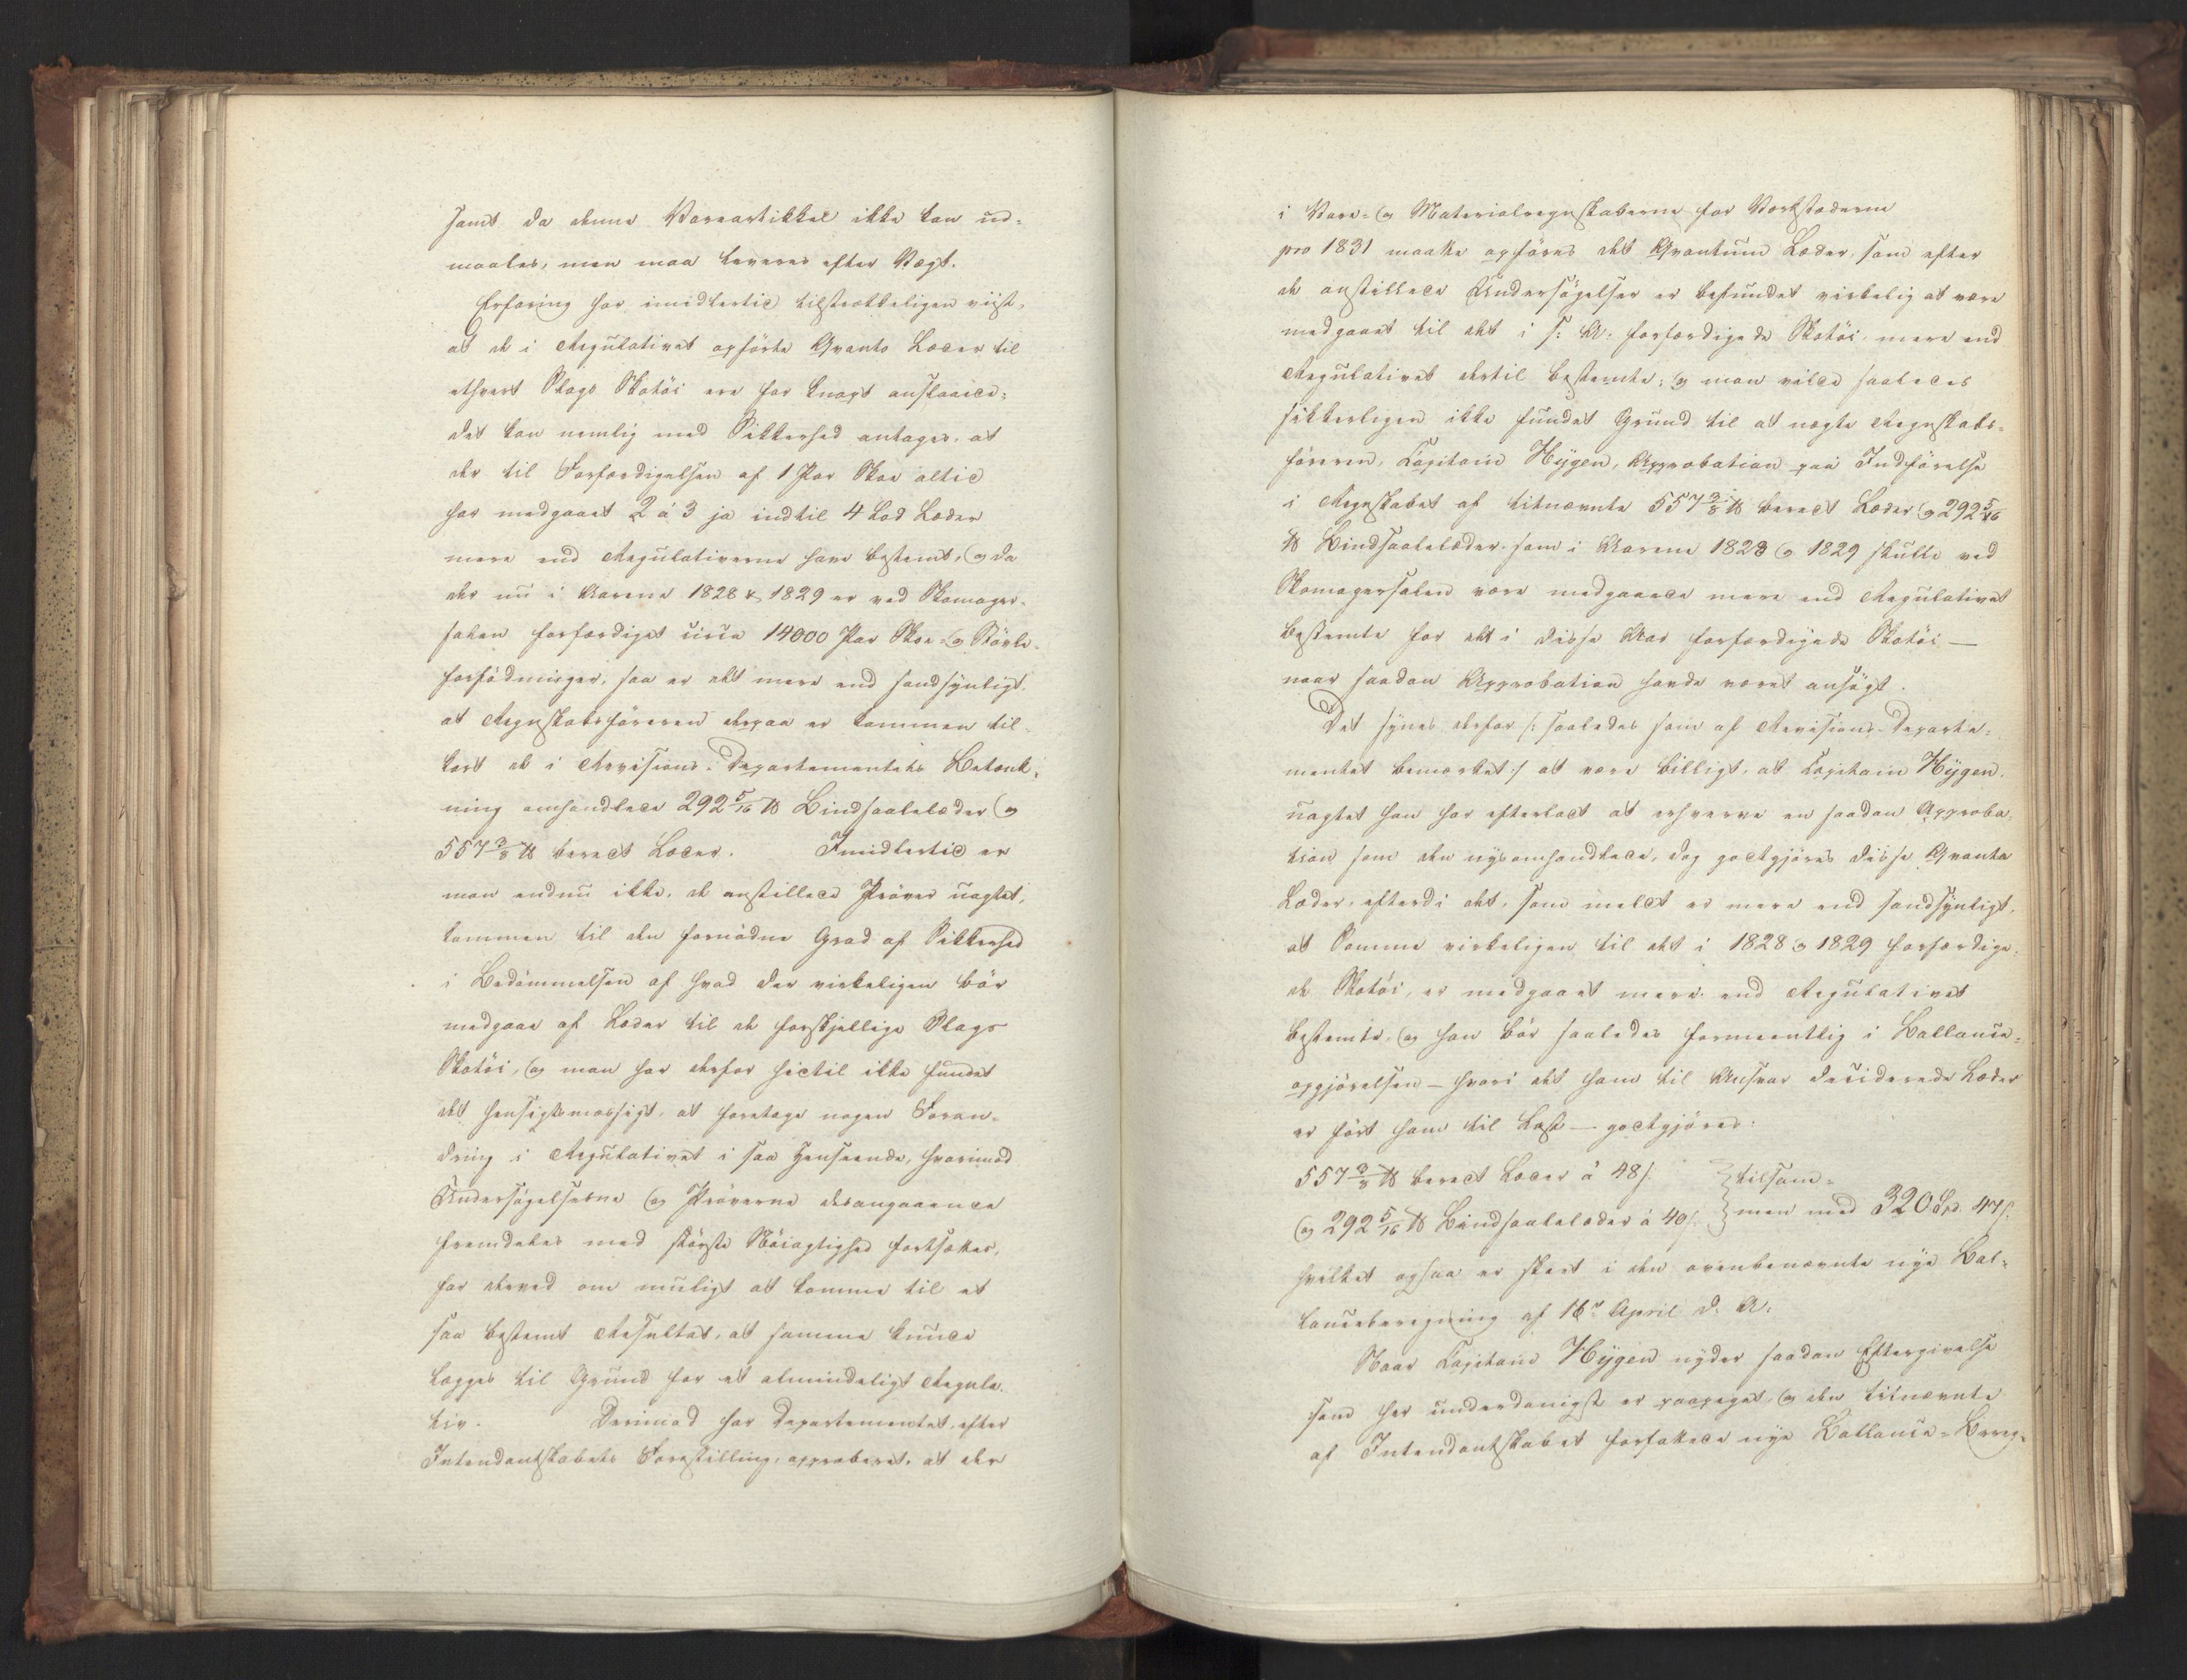 samt da denne Vareartikkel ikke kan ud-
maales, men maa leveres efter Vægt.
Erfaring har imidlertid tilstrækkeligen viist,
at de i Regulativet opförte Qvanta Læder til
ethvert Slags Skotöi ere for knapt anslaaede;
det kan nemlig med Sikkerhed antages, at
der til Forfærdigelsen af 1 Par Skoe altid
har medgaaet 2 á 3 ja indtil 4 Lod Læder
mere end Regulativerne have bestemt, og da
der nu i Aarene 1828 & 1829 er ved Skomager-
salen forfærdiget circa 14000 Par Skoe- og Stövle-
forfödninger, saa er det mere end sandsynligt,
at Regnskabsföreren derpaa er kommen til-
kort de i Revisions-Departementets Betænk-
ning omhandlede 292 5/16 ℔ Bindsaalelæder og
557 3/8 ℔ beredt Læder. Imidlertid er
man endnu ikke, de anstillede Pröver uagtet,
kommen til den fornödne Grad af Sikkerhed
i Bedömmelsen af hvad der virkeligen bör
medgaae af Læder til de forskjellige Slags
Skotöi, og man har derfor hidtil ikke fundet
det hensigtsmæssigt, at foretage nogen Foran-
dring i Regulativet i saa Henseende, hvorimod
Undersögelserne og Pröverne desangaaende
fremdeles med störste Nöiagtighed fortsættes,
for derved om muligt at komme til et
saa bestemt Resultat, at samme kunde
lægges til Grund for et almindeligt Regula-
tiv. Derimod har Departementet, efter
Intendantskabets Forestilling, approberet, at der
i Vare- og Materialregnskaberne for Værkstæderne
pro 1831 maatte opföres det Qvantum Læder, som efter
de anstillede Undersögelser er befundet virkelig at være
medgaaet til det i s: A: forfærdigede Skotöi, mere end
Regulativet dertil bestemte; og man vilde saaledes
sikkerligen ikke fundet Grund til at nægte Regnskabs-
föreren, Capitain Hÿgen, Approbation paa Indförelse
i Regnskabet af bemeldte 557 3/8 ℔ beredt Læder og 292 5/16
℔ Bindsaalelæder, som i Aarene 1828 og 1829 skulle ved
Skomagersalen være medgaaede mere end Regulativet
bestemte for det i disse Aar forfærdigede Skotöi —
naar saadan Approbation havde været ansögt.
Det synes derfor /: saaledes som af Revisions-Departe-
mentet bemærket :/ at være billigt, at Capitain Hÿgen,
uagtet han har efterladt at erhverve en saadan Approba-
tion som den nysomhandlede, dog godtgjöres disse Qvanta
Læder, efterdi det, som meldt er mere end sandsynligt,
at Samme virkeligen til det i 1828 og 1829 forfærdige-
de Skotöi, er medgaaet mere end Regulativet
bestemte, og han bör saaledes formeentlig i Ballance-
opgjörelsen — hvori det ham til Ansvar deciderede Læder
er fört ham til Last — godtgjöres:
557 3/8 ℔ beredt Læder á 48 s. } tilsam-
og 292 5/16 ℔ Bindsaalelæder á 40 s. } men med 320 Spd. 47 s.
hvilket ogsaa er skeet i den ovenbenævnte nye Bal-
lanceberegning af 16de April d. A:
Naar Capitain Hÿgen nyder saadan Eftergivelse
som her underdanigst er paapeget, og den
af Intendantskabet forfattede nye Ballance-Bereg-